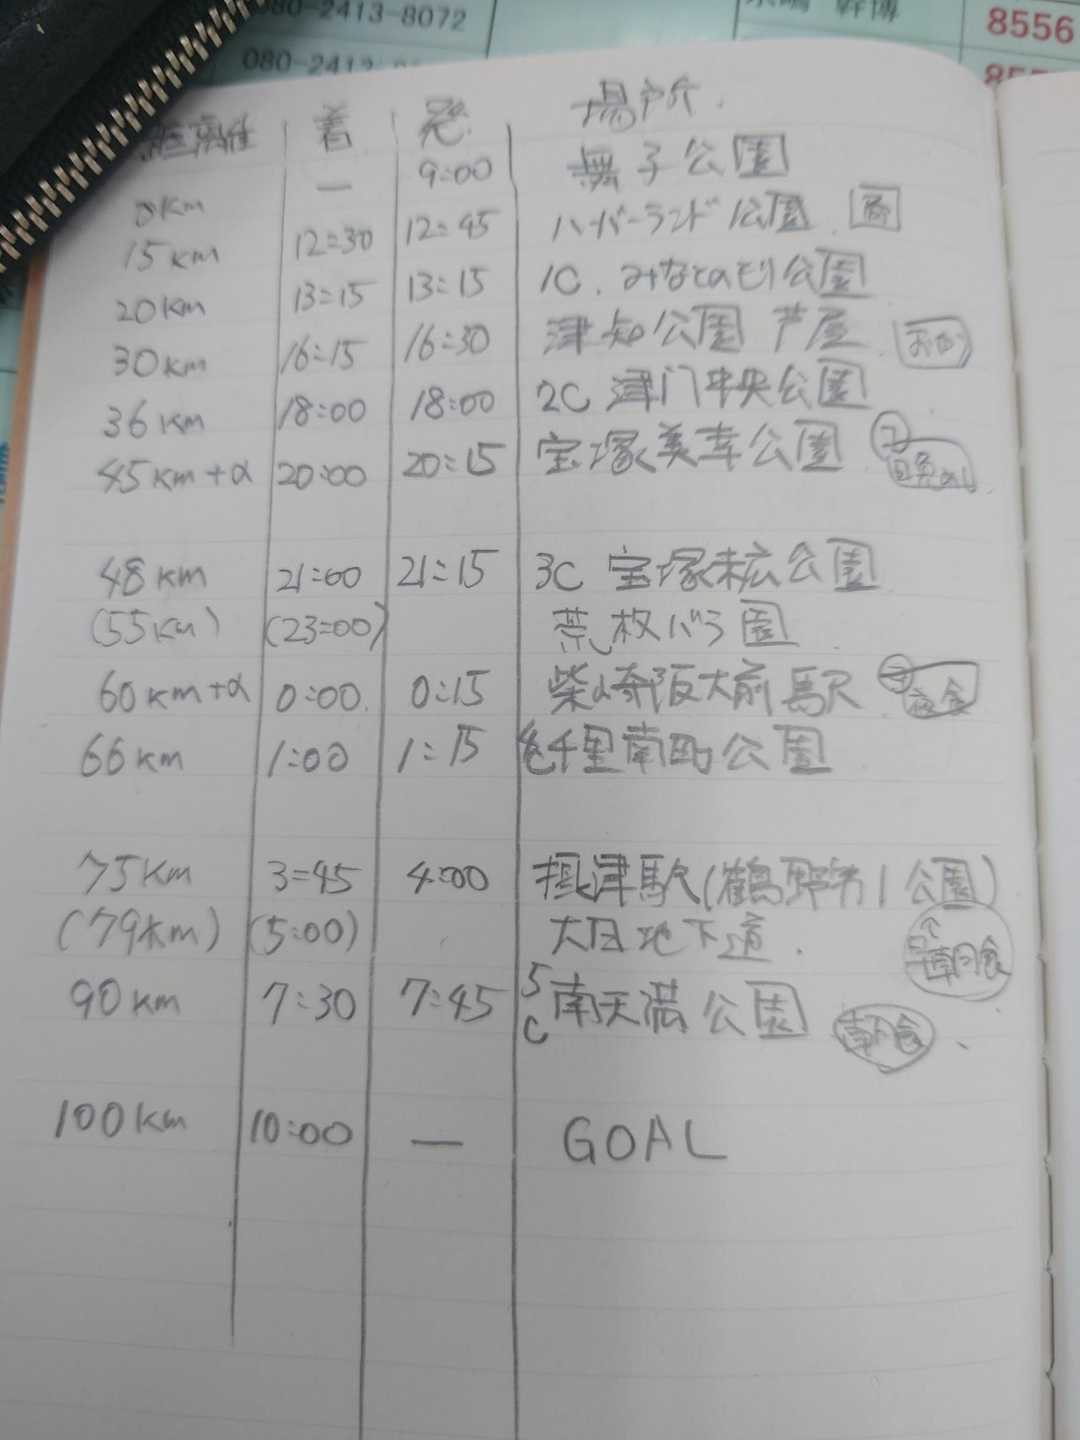 080-2413-8072
8556
080-2413
距離 着 発 場所
0km — 9:00 舞子公園
15km 12:30 12:45 ハーバーランド公園
20km 13:15 13:15 1C.みなとのもり公園
30km 16:15 16:30 津知公園 芦屋
36km 18:00 18:00 2C 津门中央公園
45km+α 20:00 20:15 宝塚美幸公園
48km 21:00 21:15 3C 宝塚末広公園
(55km) (23:00) 荒牧バラ園
60km+α 0:00 0:15 柴崎阪大前駅 夜食
66km 1:00 1:15 千里南町公園
75km 3:45 4:00 摂津駅(鶴野第1公園)
(79km) (5:00) 大日地下道. 朝食
90km 7:30 7:45 5C 南天満公園 朝食
100km 10:00 — GOAL